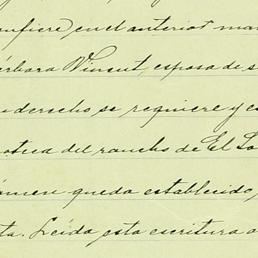 confiere, en el anterior man
Bárbara Vincent, esposa de s
n derecho se requiere y es
oteca del rancho de El So
ámen queda establecido,
ta. Leída esta escritura a